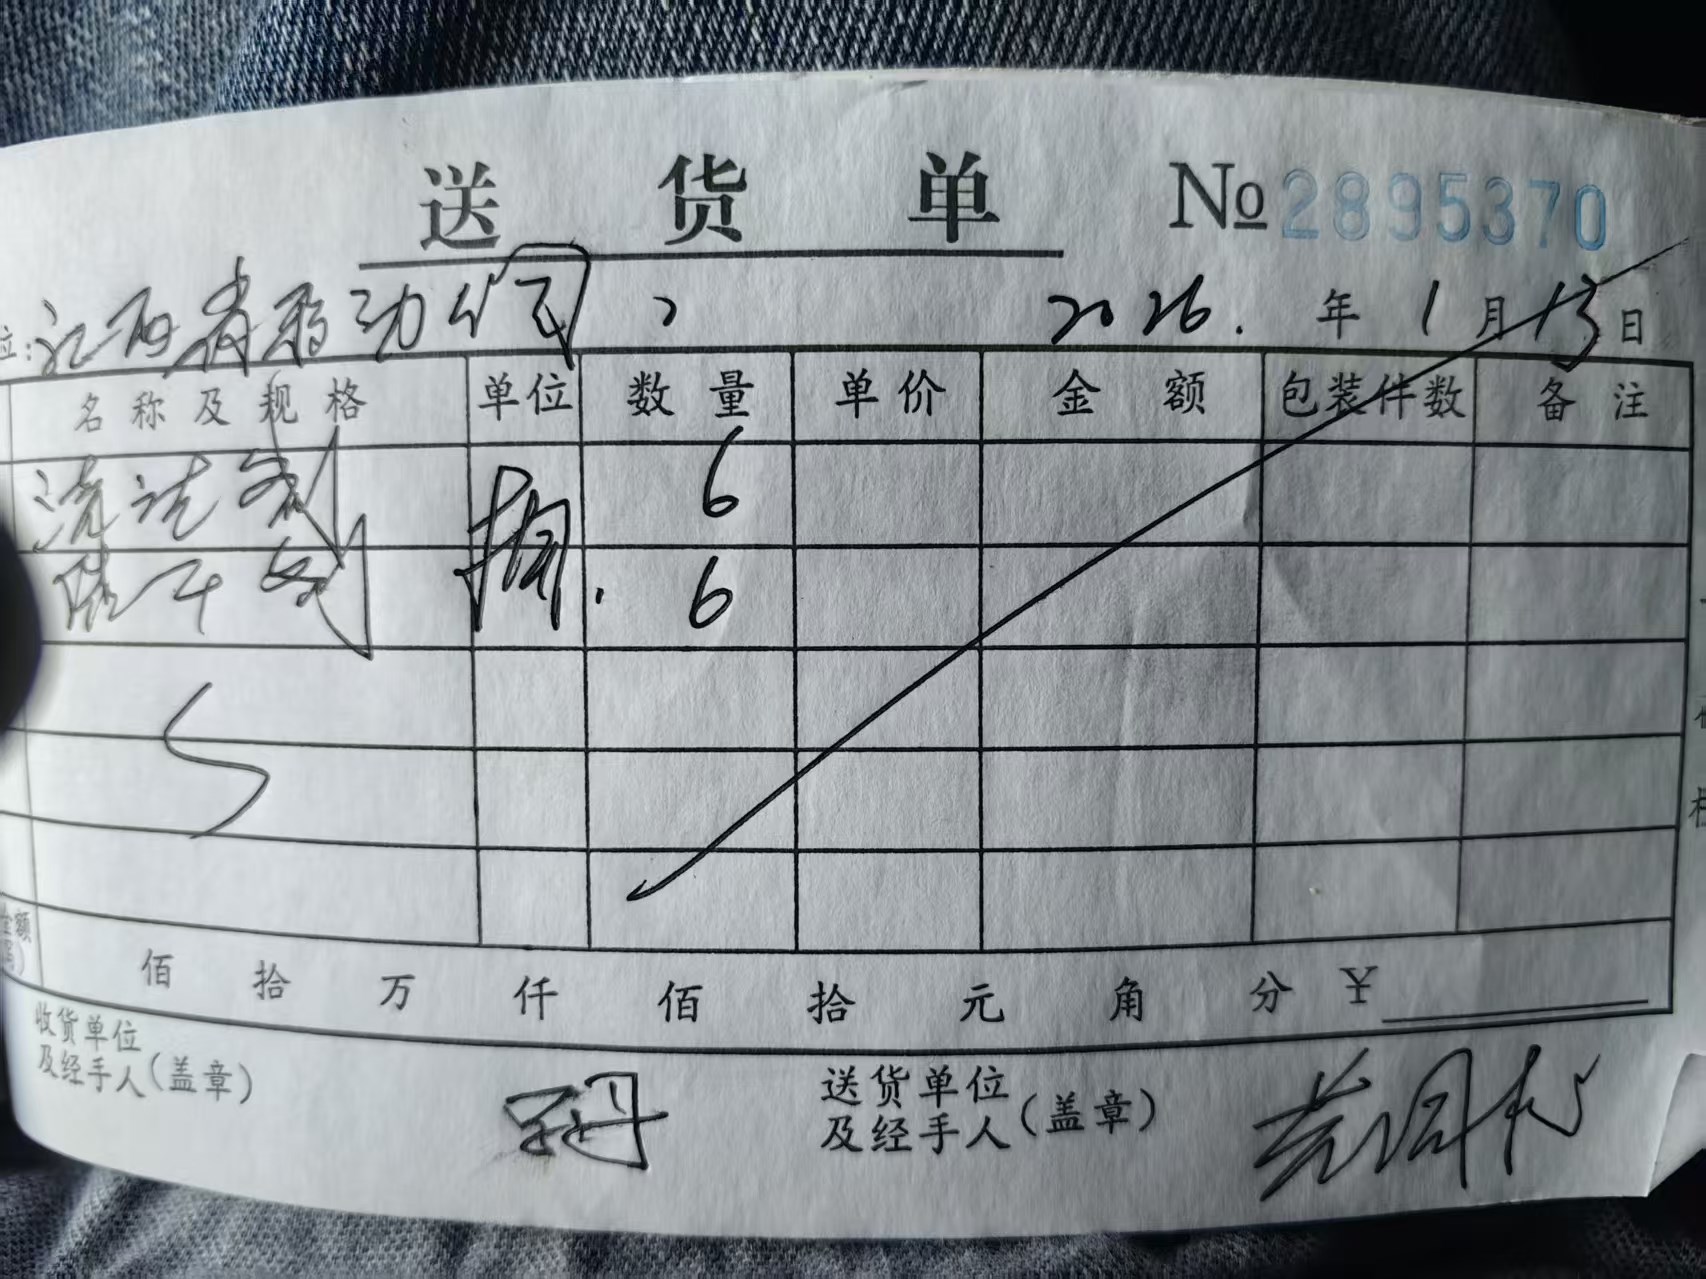 送货单 №2895370
位: 江西省移动公司 2026. 年 1 月 13 日
名称及规格 单位 数量 单价 金额 包装件数 备注
洗洁剂 桶. 6
6
金额
佰 拾 万 仟 佰 拾 元 角 分 ¥
收货单位
及经手人(盖章)
送货单位
及经手人(盖章)